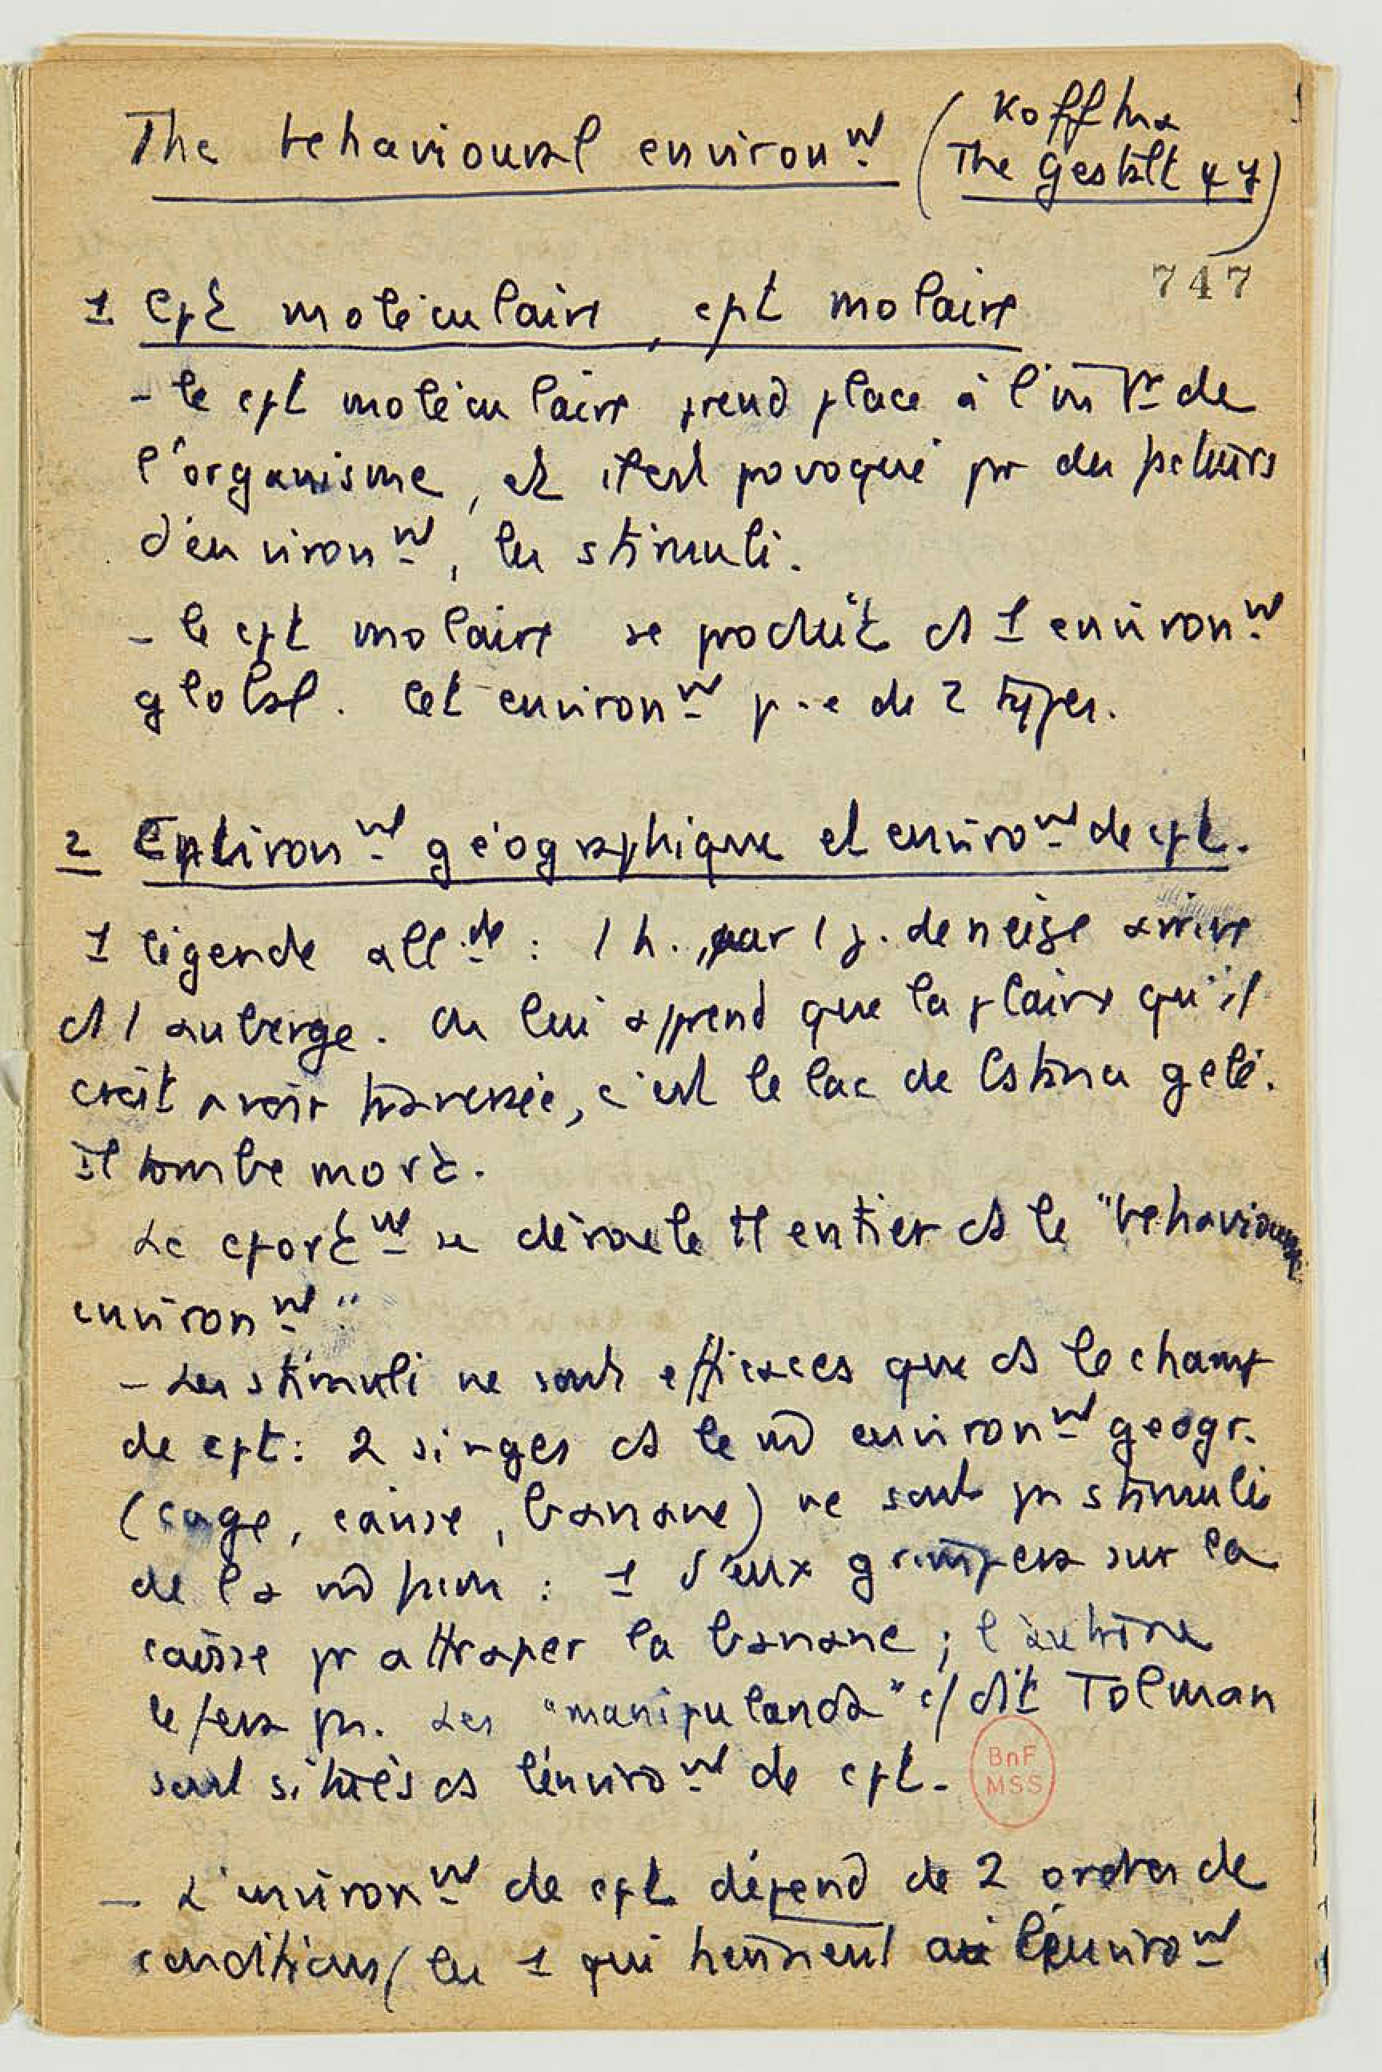 The behavioural environnt (Koffka
The Gestalt ψ γ)
747
1 Cpt moléculaire, cpt molaire
- le cpt moléculaire prend place à l'intr de
l'organisme, et il est provoqué pr des facteurs
d'environnt, les stimuli.
- le cpt molaire se produit ds 1 environnt
global. Cet environnt p.e de 2 types.
2 Environnt géographique et environt de cpt.
1 légende allde : 1 h., par 1 j. de neige arrive
ds 1 auberge. On lui apprend que la plaine qu'il
croit avoir traversée, c'est le lac de Constance gelé.
Il tombe mort.
Le cportt se déroule tt entier ds le "behavioural
environnt"
- Les stimuli ne sont efficaces que ds le champ
de cpt : 2 singes ds le m̄ environnt géogr.
(cage, caisse, banane) ne sont ps stimulés
de la m̄ : 1 d'eux grimpera sur la
caisse pr attraper la banane ; l'autre ne
le fera ps. Les "manipulanda" c/ dit Tolman
sont situés ds l'environt de cpt.
BnF
MSS
- L'environnt de cpt dépend de 2 ordres de
conditions/ les 1 qui tiennent à l'environt